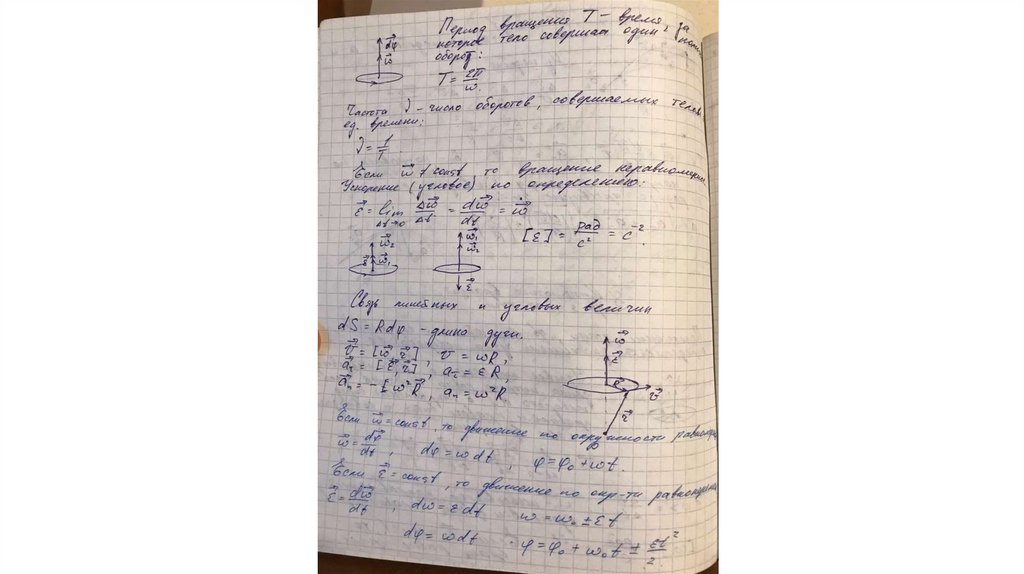 Период вращения T – время, за
которое тело совершает один
оборот:
T = 2π/ω
dφ⃗
ω⃗
Частота ν – число оборотов, совершаемых телом
ед. времени:
ν = 1/T.
Если ω⃗ ≠ const, то вращение неравномерн
Ускорение (угловое) по определению:
ε⃗ = lim Δt→0 Δω⃗/Δt = dω⃗/dt = ω⃗̇
[ε] = рад/с² = с⁻².
ω⃗₂
ε⃗ ω⃗₁
ω⃗₁
ω⃗₂
ε⃗
Связь линейных и угловых величин
dS = Rdφ – длина дуги.
v⃗ = [ω⃗, r⃗], v = ωR,
a⃗τ = [ε⃗, r⃗], aτ = εR,
a⃗n = – ω²R⃗, an = ω²R
ω⃗
ε⃗
R
v⃗
r⃗
Если ω⃗ = const, то движение по окружности равномерн
ω⃗ = dφ⃗/dt, dφ = ωdt, φ = φ₀ + ωt.
Если ε⃗ = const, то движение по окр-ти
ε⃗ = dω⃗/dt, dω = εdt ω = ω₀ ± εt
dφ = ωdt φ = φ₀ + ω₀t ± εt²/2.